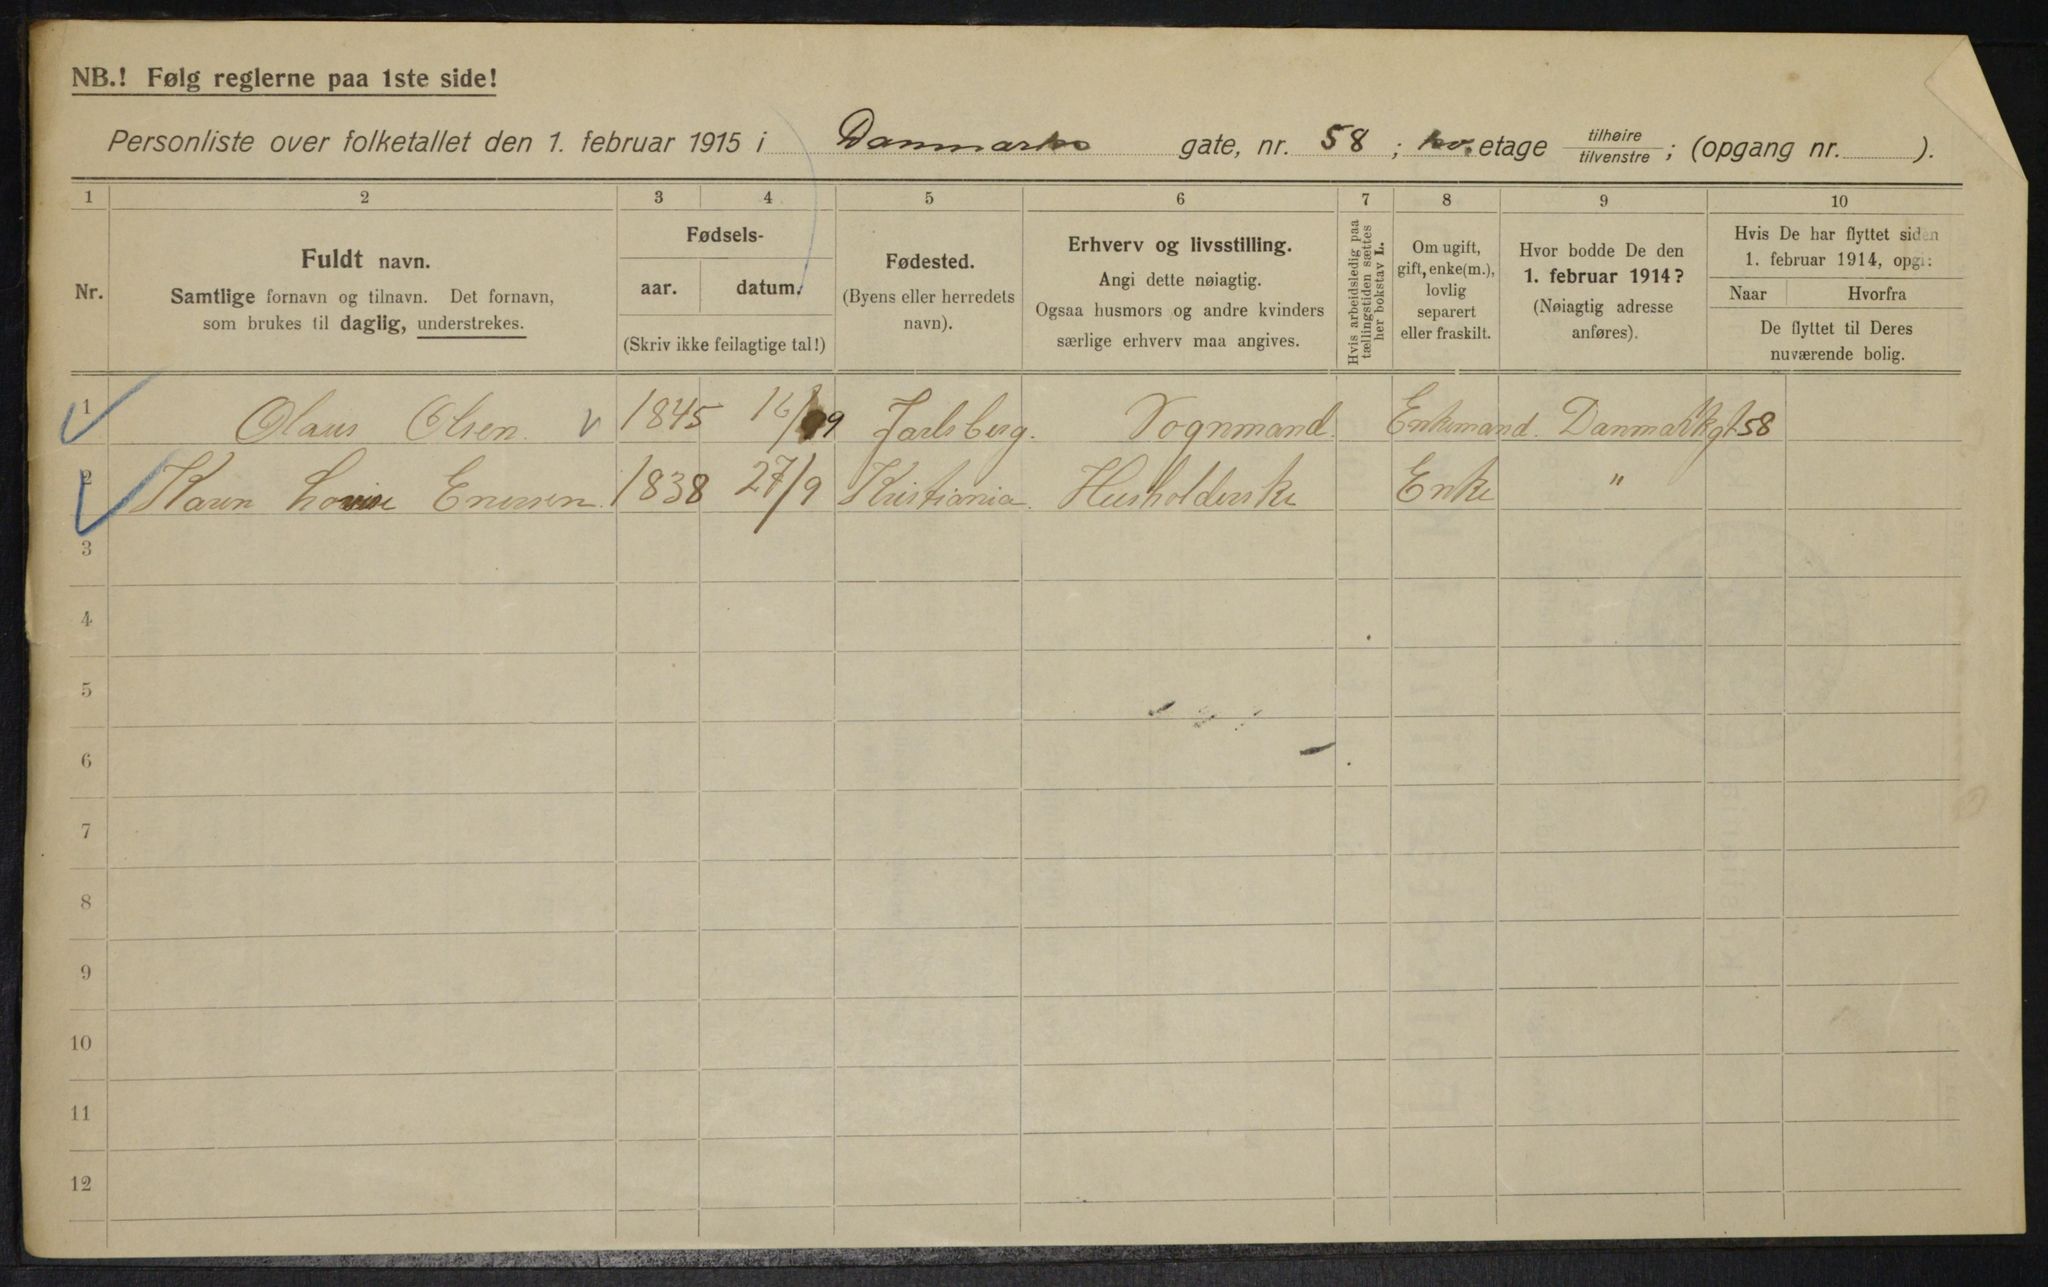 NB.! Følg reglerne paa 1ste side!
Personliste over folketallet den 1. februar 1915 i Danmarks gate, nr. 58 ; etage tilhøire tilvenstre ; (opgang nr. ).
1 2 3 4 5 6 7 8 9 10
Nr.
Fuldt navn.
Samtlige fornavn og tilnavn. Det fornavn,
som brukes til daglig, understrekes.
Fødsels-
aar. datum.
(Skriv ikke feilagtige tal!)
Fødested.
(Byens eller herredets
navn).
Erhverv og livsstilling.
Angi dette nøiagtig.
Ogsaa husmors og andre kvinders
særlige erhverv maa angives.
Hvis arbeidsledig paa
tællingstiden sættes
her bokstav L.
Om ugift,
gift, enke(m.),
lovlig
separert
eller fraskilt.
Hvor bodde De den
1. februar 1914?
(Nøiagtig adresse
anføres).
Hvis De har flyttet siden
1. februar 1914, opgi:
Naar Hvorfra
De flyttet til Deres
nuværende bolig.
1 Olaus Olsen. 1845 16/9 Jarlsberg. Vognmand. Enkemand. Danmarkgt 58
2 Karen Lovise Enersen. 1838 27/9 Kristiania. Husholderske Enke "
3
4
5
6
7
8
9
10
11
12